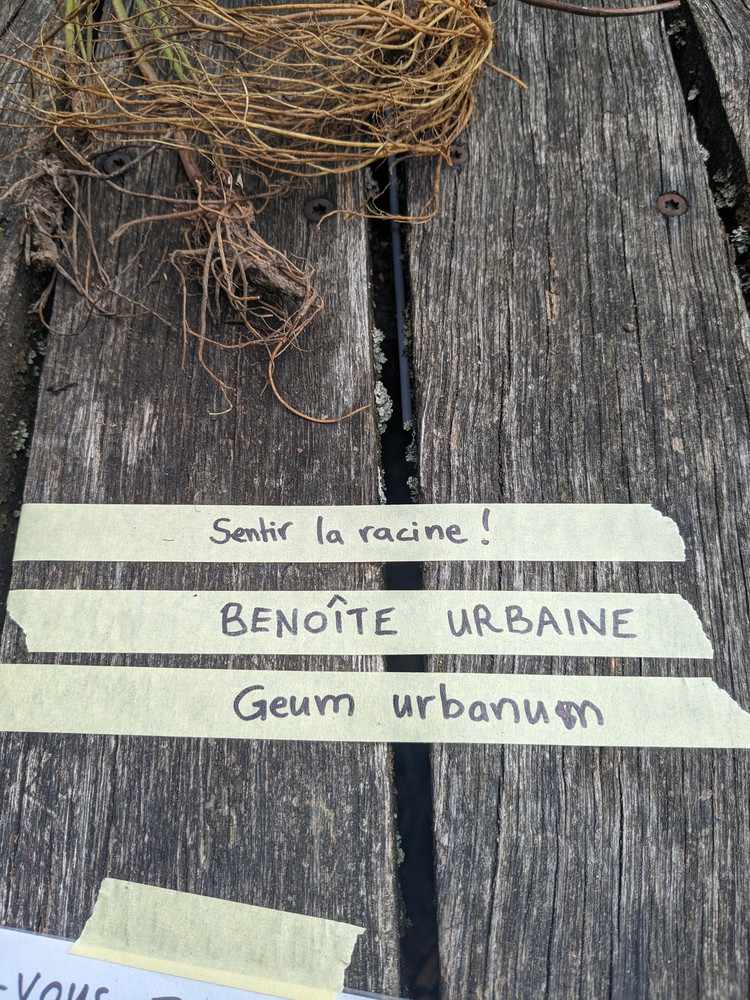 Sentir la racine !
BENOÎTE URBAINE
Geum urbanum
-vous